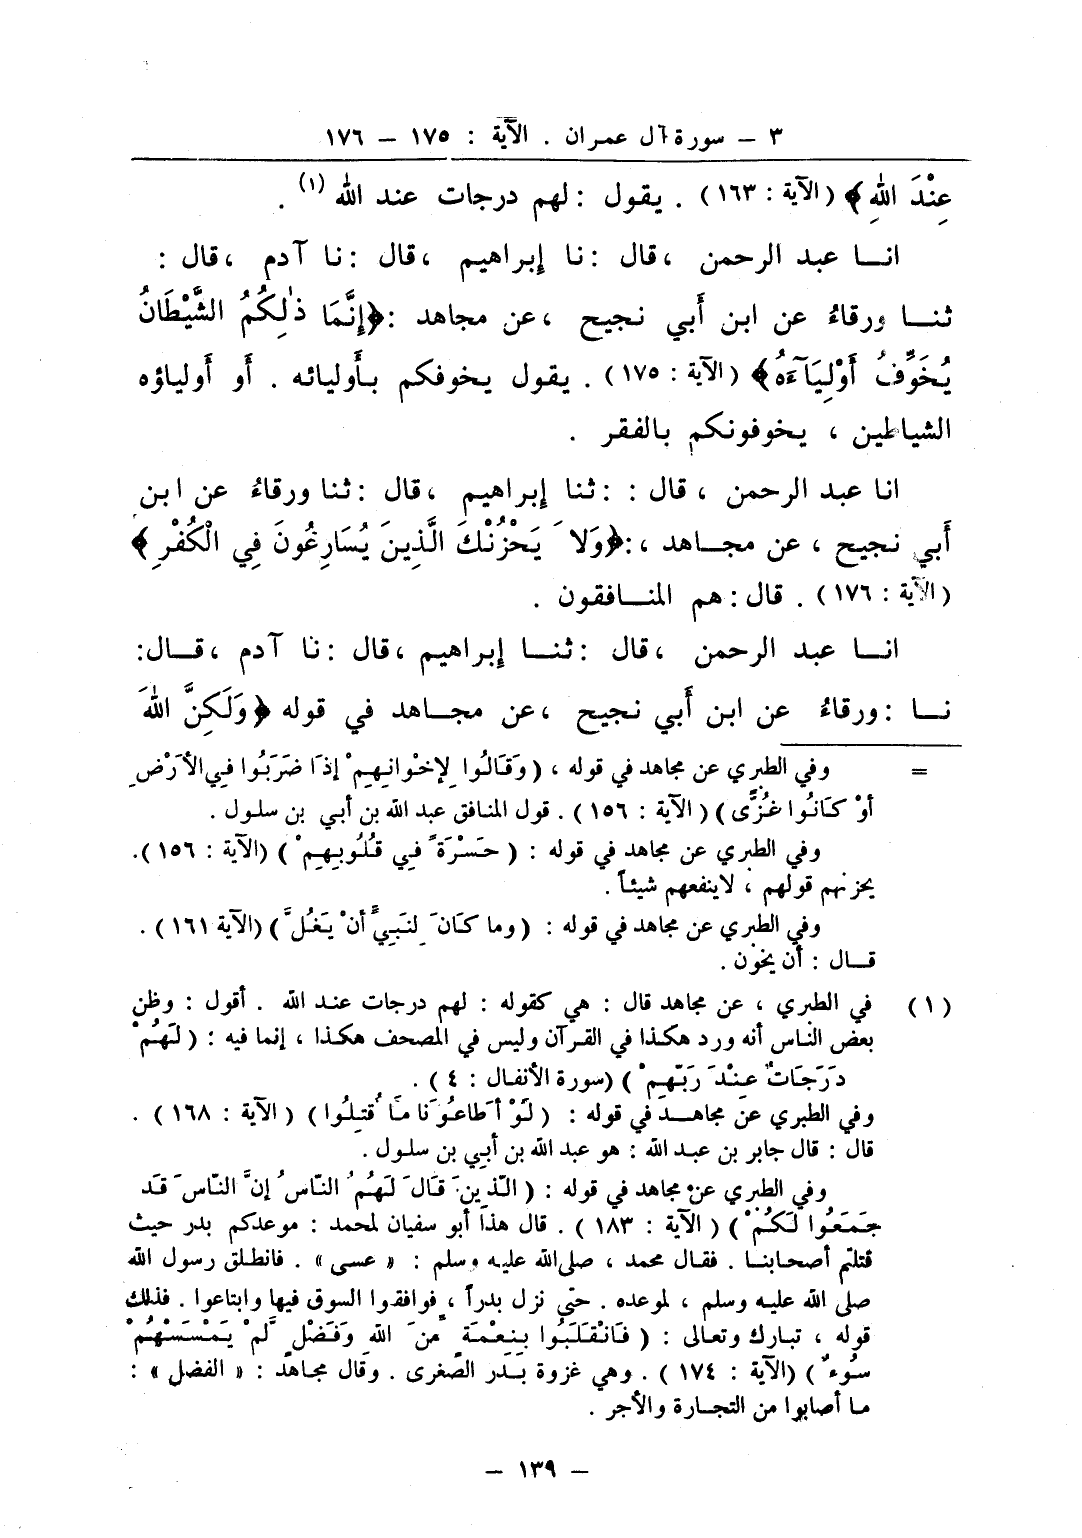 ٣ – سورة آل عمران . الآية : ١٧٥ – ١٧٦
عِنْدَ اللهِ﴾ (الآية : ١٦٣) . يقول : لهم درجات عند الله (١) .
انــا عبد الرحمن ، قال : نا إبراهيم ، قال : نا آدم ، قال :
ثنــا ورقاءُ عن ابن أَبي نجيح ، عن مجاهد : ﴿إِنَّمَا ذٰلِكُمُ الشَّيْطَانُ
يُخَوِّفُ أَوْلِيَآءَهُ﴾ (الآية : ١٧٥) . يقول يخوفكم بأَوليائه . أَو أَولياؤه
الشياطين ، يخوفونكم بالفقر .
انا عبد الرحمن ، قال : : ثنا إبراهيم ، قال : ثنا ورقاءُ عن ابن
أَبي نجيح ، عن مجــاهد ، : ﴿وَلاَ يَحْزُنْكَ الَّذِينَ يُسَارِعُونَ فِي الْكُفْرِ﴾
(الآية : ١٧٦) . قال : هم المنــافقون .
انــا عبد الرحمن ، قال : ثنــا إبراهيم ، قال : نا آدم ، قــال :
نــا : ورقاءُ عن ابن أَبي نجيح ، عن مجــاهد في قوله ﴿وَلَكِنَّ اللهَ
= وفي الطبري عن مجاهد في قوله ، (وَقَالُوا لِإخْوانِهِمْ إذَا ضَرَبُوا فِي الأرْضِ
أوْ كَانُوا غُزًّى) (الآية : ١٥٦) . قول المنافق عبد الله بن أبي بن سلول .
وفي الطبري عن مجاهد في قوله : (حَسْرَةً فِي قُلُوبِهِمْ) (الآية : ١٥٦).
يحزنهم قولهم ، لاينفعهم شيئاً .
وفي الطبري عن مجاهد في قوله : (وما كَانَ لِنَبِيٍّ أنْ يَغُلَّ) (الآية ١٦١) .
قــال : أن يخون .
(١) في الطبري ، عن مجاهد قال : هي كقوله : لهم درجات عند الله . أقول : وظن
بعض الناس أنه ورد هكذا في القرآن وليس في المصحف هكذا ، إنما فيه : (لَهُمْ
دَرَجَاتٌ عِنْدَ رَبِّهِمْ) (سورة الأنفال : ٤) .
وفي الطبري عن مجاهــد في قوله : (لَوْ أطَاعُونَا مَا قُتِلُوا) (الآية : ١٦٨) .
قال : قال جابر بن عبد الله : هو عبد الله بن أبي بن سلول .
وفي الطبري عن مجاهد في قوله : (الَّذِينَ قَالَ لَهُمُ النَّاسُ إنَّ النَّاسَ قَدْ
جَمَعُوا لَكُمْ) (الآية : ١٨٣) . قال هذا أبو سفيان لمحمد : موعدكم بدر حيث
قتلتم أصحابنا . فقال محمد ، صلى الله عليه وسلم : « عسى » . فانطلق رسول الله
صلى الله عليه وسلم ، لموعده . حتى نزل بدراً ، فوافقوا السوق فيها وابتاعوا . فذلك
قوله ، تبارك وتعالى : (فَانْقَلَبُوا بِنِعْمَةٍ مِنَ اللهِ وَفَضْلٍ لَمْ يَمْسَسْهُمْ
سُوءٌ) (الآية : ١٧٤) . وهي غزوة بَدر الصغرى . وقال مجاهد : « الفضل » :
ما أصابوا من التجارة والأجر .
– ١٣٩ –